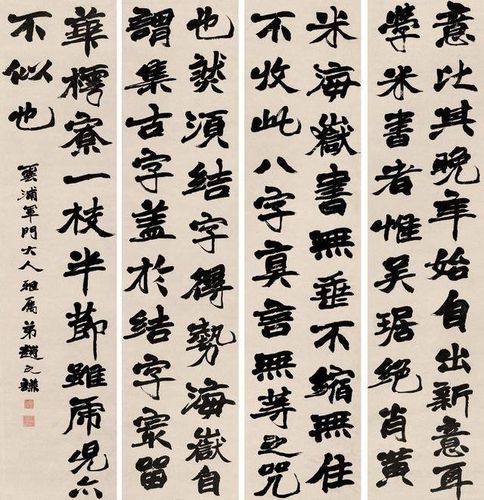 意比其晚年始自出新意耳
學米書者惟吴琚絶肖黄
米海嶽書無垂不縮無住
不收此八字真言無等之咒
也然須結字得勢海嶽自
謂集古字盖於結字最留
華樗寮一枝半節雖虎児亦
不似也
雲浦軍門大人雅屬弟趙之謙